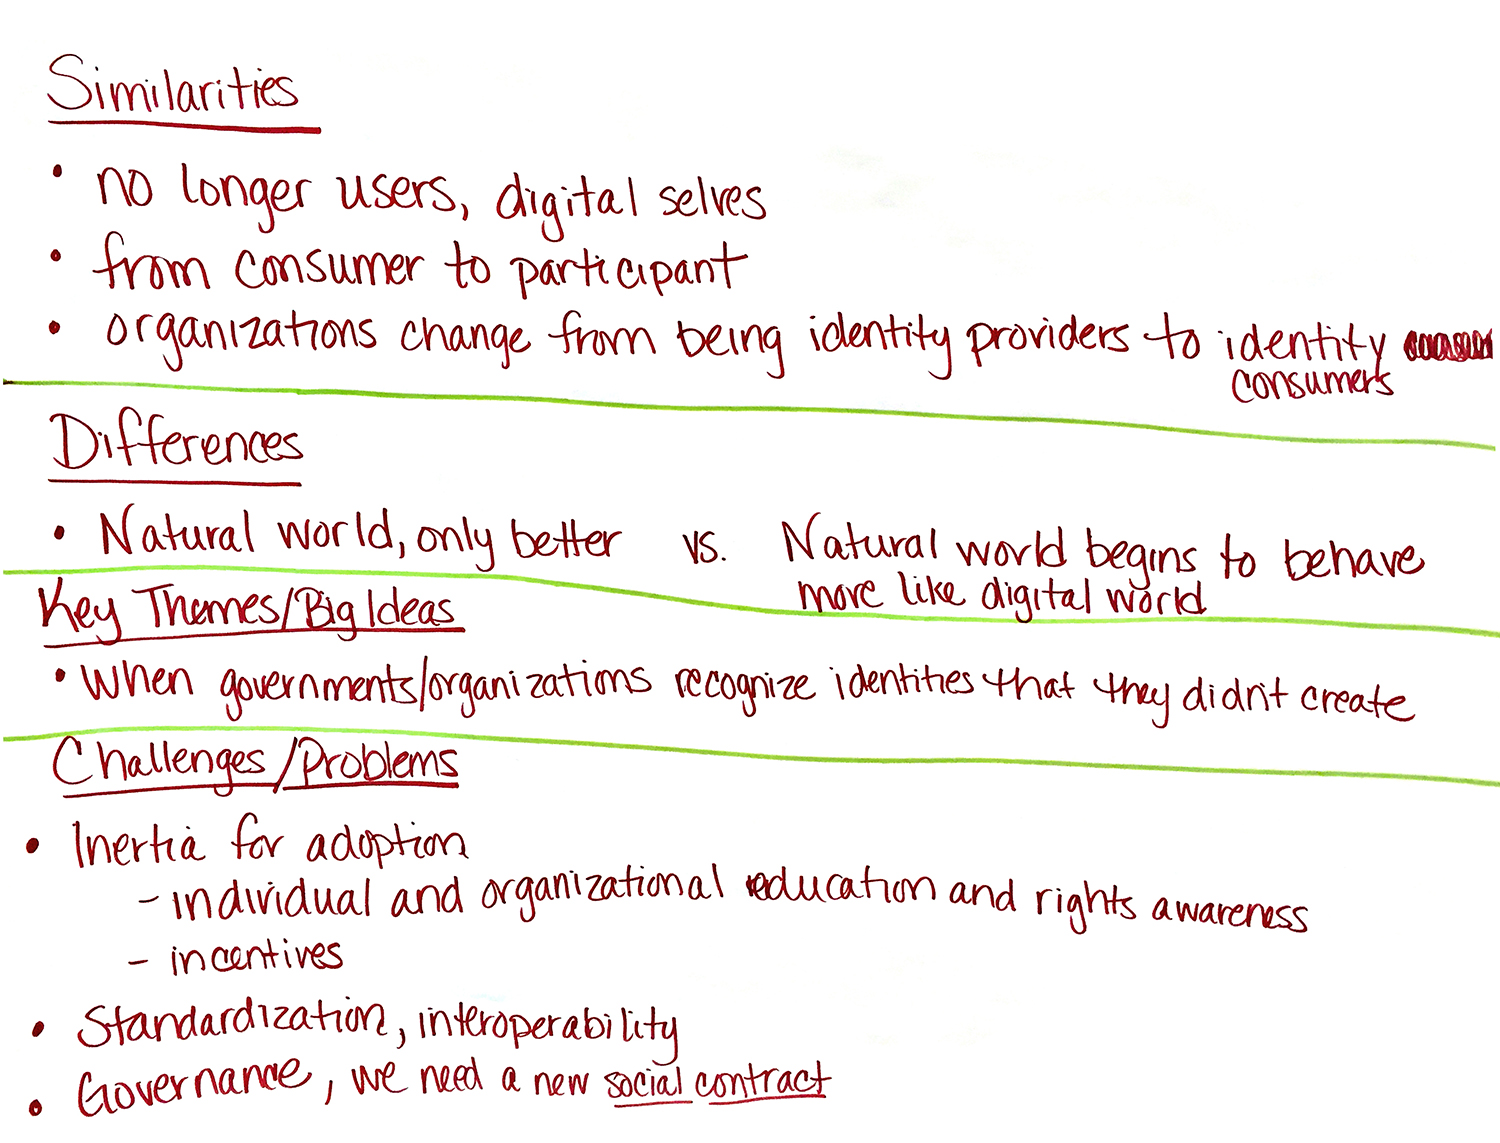 Similarities
• no longer users, digital selves
• from consumer to participant
• organizations change from being identity providers to identity
consumers
Differences
• Natural world, only better vs. Natural world begins to behave
more like digital world
Key Themes/Big Ideas
• When governments/organizations recognize identities that they didn't create
Challenges/Problems
• Inertia for adoption
- individual and organizational education and rights awareness
- incentives
• Standardization, interoperability
• Governance, we need a new social contract